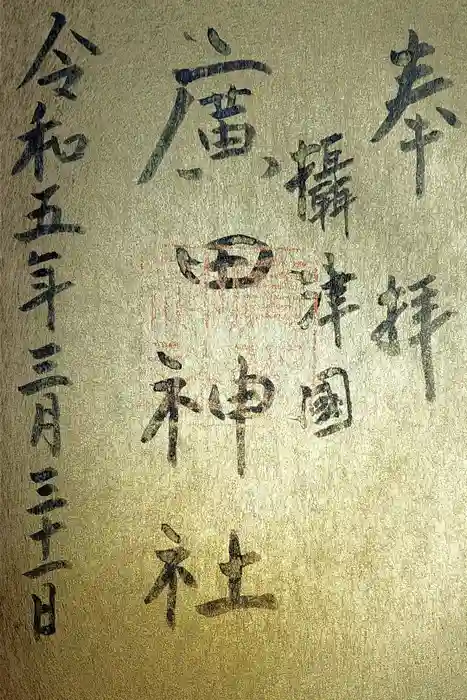 奉拝
攝津國
廣田神社
令和五年三月三十一日